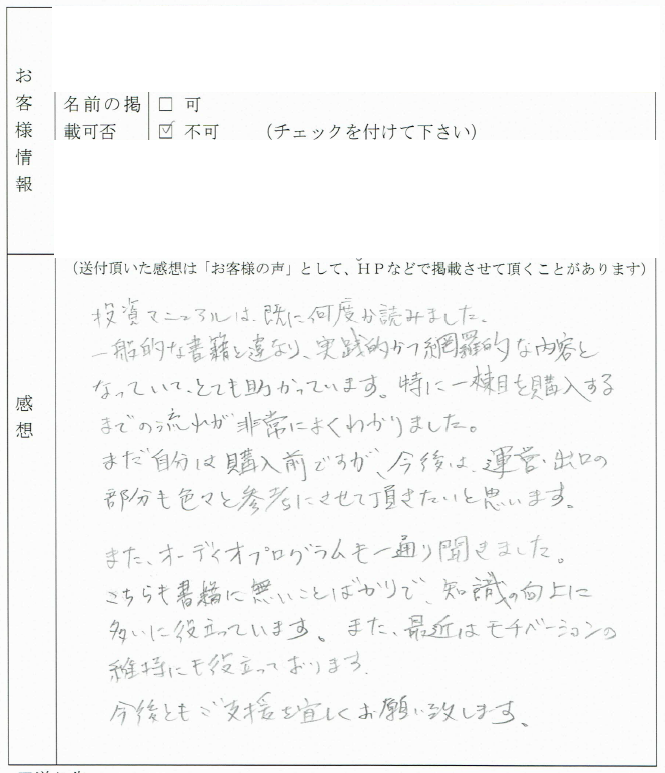 お客様情報
名前の掲載可否
□ 可
☑ 不可 (チェックを付けて下さい)
(送付頂いた感想は「お客様の声」として、ＨＰなどで掲載させて頂くことがあります)
感想
投資マニュアルは、既に何度か読みました。
一般的な書籍と違なり、実践的かつ網羅的な内容と
なっていて、とても助かっています。特に一棟目を購入する
までの流れが非常によくわかりました。
まだ自分は購入前ですが、今後は、運営・出口の
部分も色々と参考にさせて頂きたいと思います。
また、オーディオプログラムも一通り聞きました。
こちらも書籍に無いことばかりで、知識の向上に
多いに役立っています。また、最近はモチベーションの
維持にも役立っております。
今後ともご支援を宜しくお願い致します。